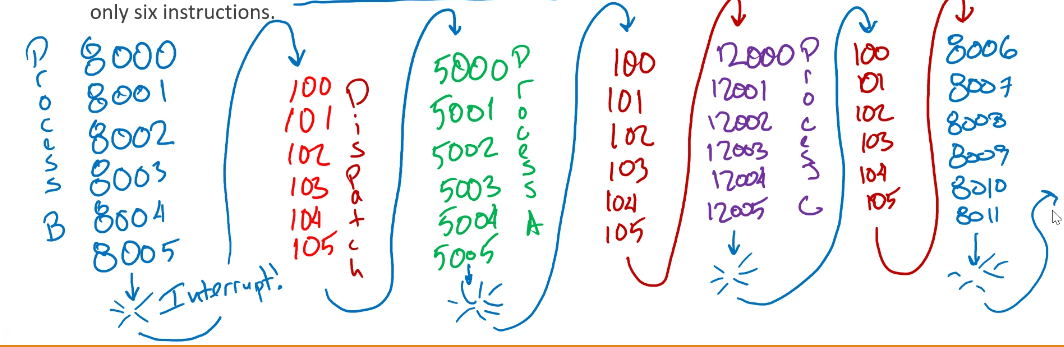 only six instructions.
Process B
8000
8001
8002
8003
8004
8005
Interrupt!
100
101
102
103
104
105
DisPatch
5000
5001
5002
5003
5004
5005
Process A
100
101
102
103
104
105
12000
12001
12002
12003
12004
12005
Process C
100
101
102
103
104
105
8006
8007
8008
8009
8010
8011